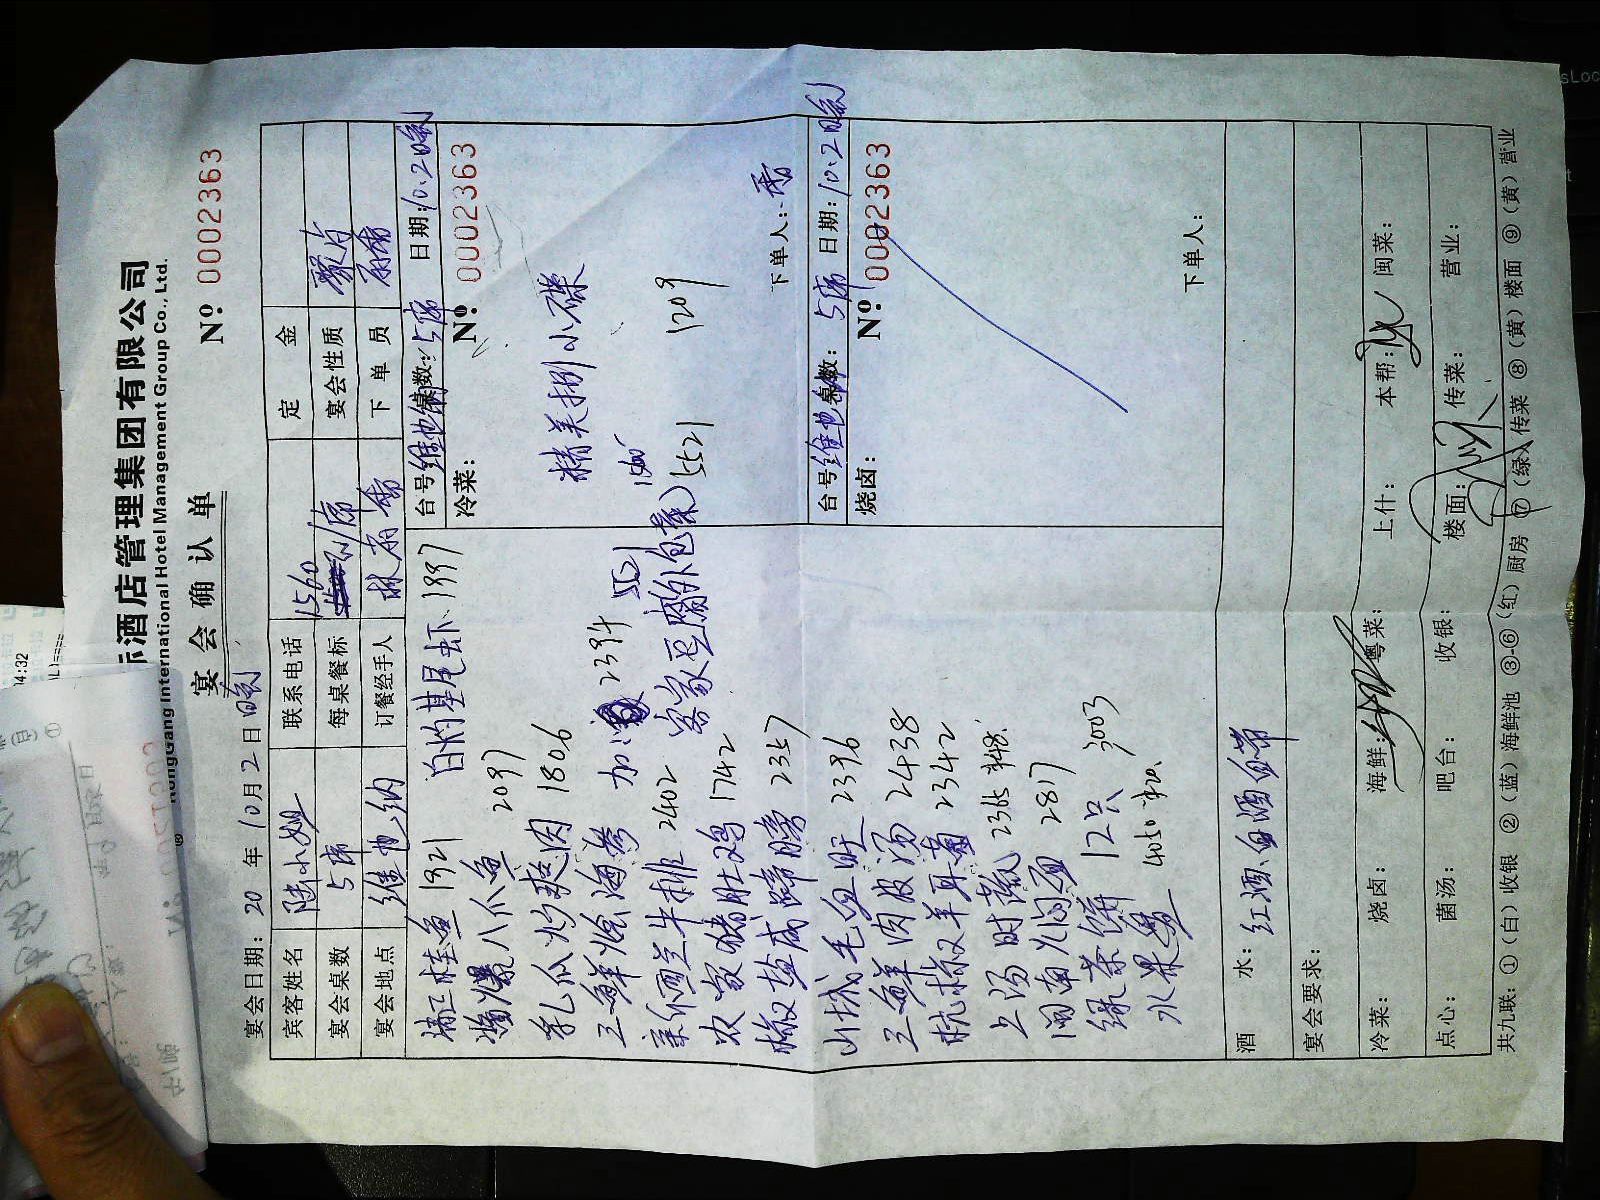 际酒店管理集团有限公司
HongGang International Hotel Management Group Co., Ltd.
宴会确认单
№ 0002363
宴会日期: 20 年 10月 2日晚
宾客姓名 陈小姐 联系电话 定金
宴会桌数 5席 每桌餐标 1560/席 宴会性质
宴会地点 维也纳 订餐经手人 下单员
台号: 维也纳 桌数: 5席 日期: 10.2晚
冷菜: № 0002363
精美捌小碟
1209
5521
下单人:
白灼基尾虾 1997
桂鱼 1321
酱爆八爪鱼 2097
1806
三鲜烩海参
2394
新西兰牛排 2402
客家豆腐
农家猪肚鸡 1742
椒盐咸蹄膀 2357
山城毛血旺 2396
三鲜肉皮汤 2438
杭椒羊耳 2342
上汤时蔬 2365
闽南焖面 2817
绿茶饼 12只 3003
水果 4050
台号: 维也纳 桌数: 5席 日期: 10.2晚
烧卤: № 0002363
下单人:
酒水: 红酒.白酒自带
宴会要求:
冷菜: 烧卤: 海鲜: 粤菜: 上什: 本帮: 闽菜:
点心: 菌汤: 吧台: 收银: 楼面: 传菜: 营业:
共九联: ①(白)收银 ②(蓝)海鲜池 ③-⑥(红)厨房 ⑦(绿)传菜 ⑧(黄)楼面 ⑨(黄)营业